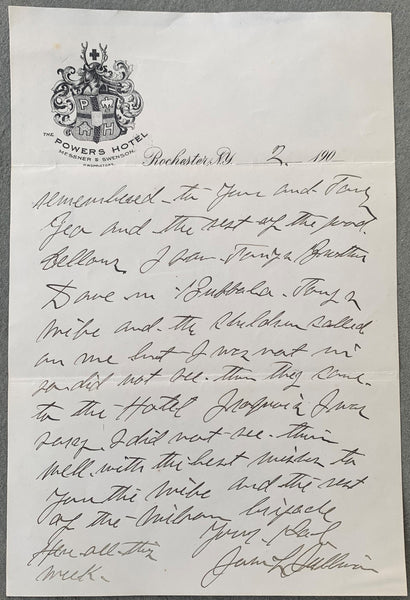 P
H
THE
POWERS HOTEL
MESSNER & SWENSON,
PROPRIETORS.
Rochester, N.Y. 2 190
remembered to you and Tony
Geo and the rest of the good
fellows I saw Tonys Brother
Dave in Buffalo. Tonys
wife and the children called
on me but I was not in
so did not see them they came
to the Hotel Iroquois I was
sorry I did not see them
well with the best wishes to
you the wife and the rest
of the
Yours Resp
John L Sullivan
Here all this
week.